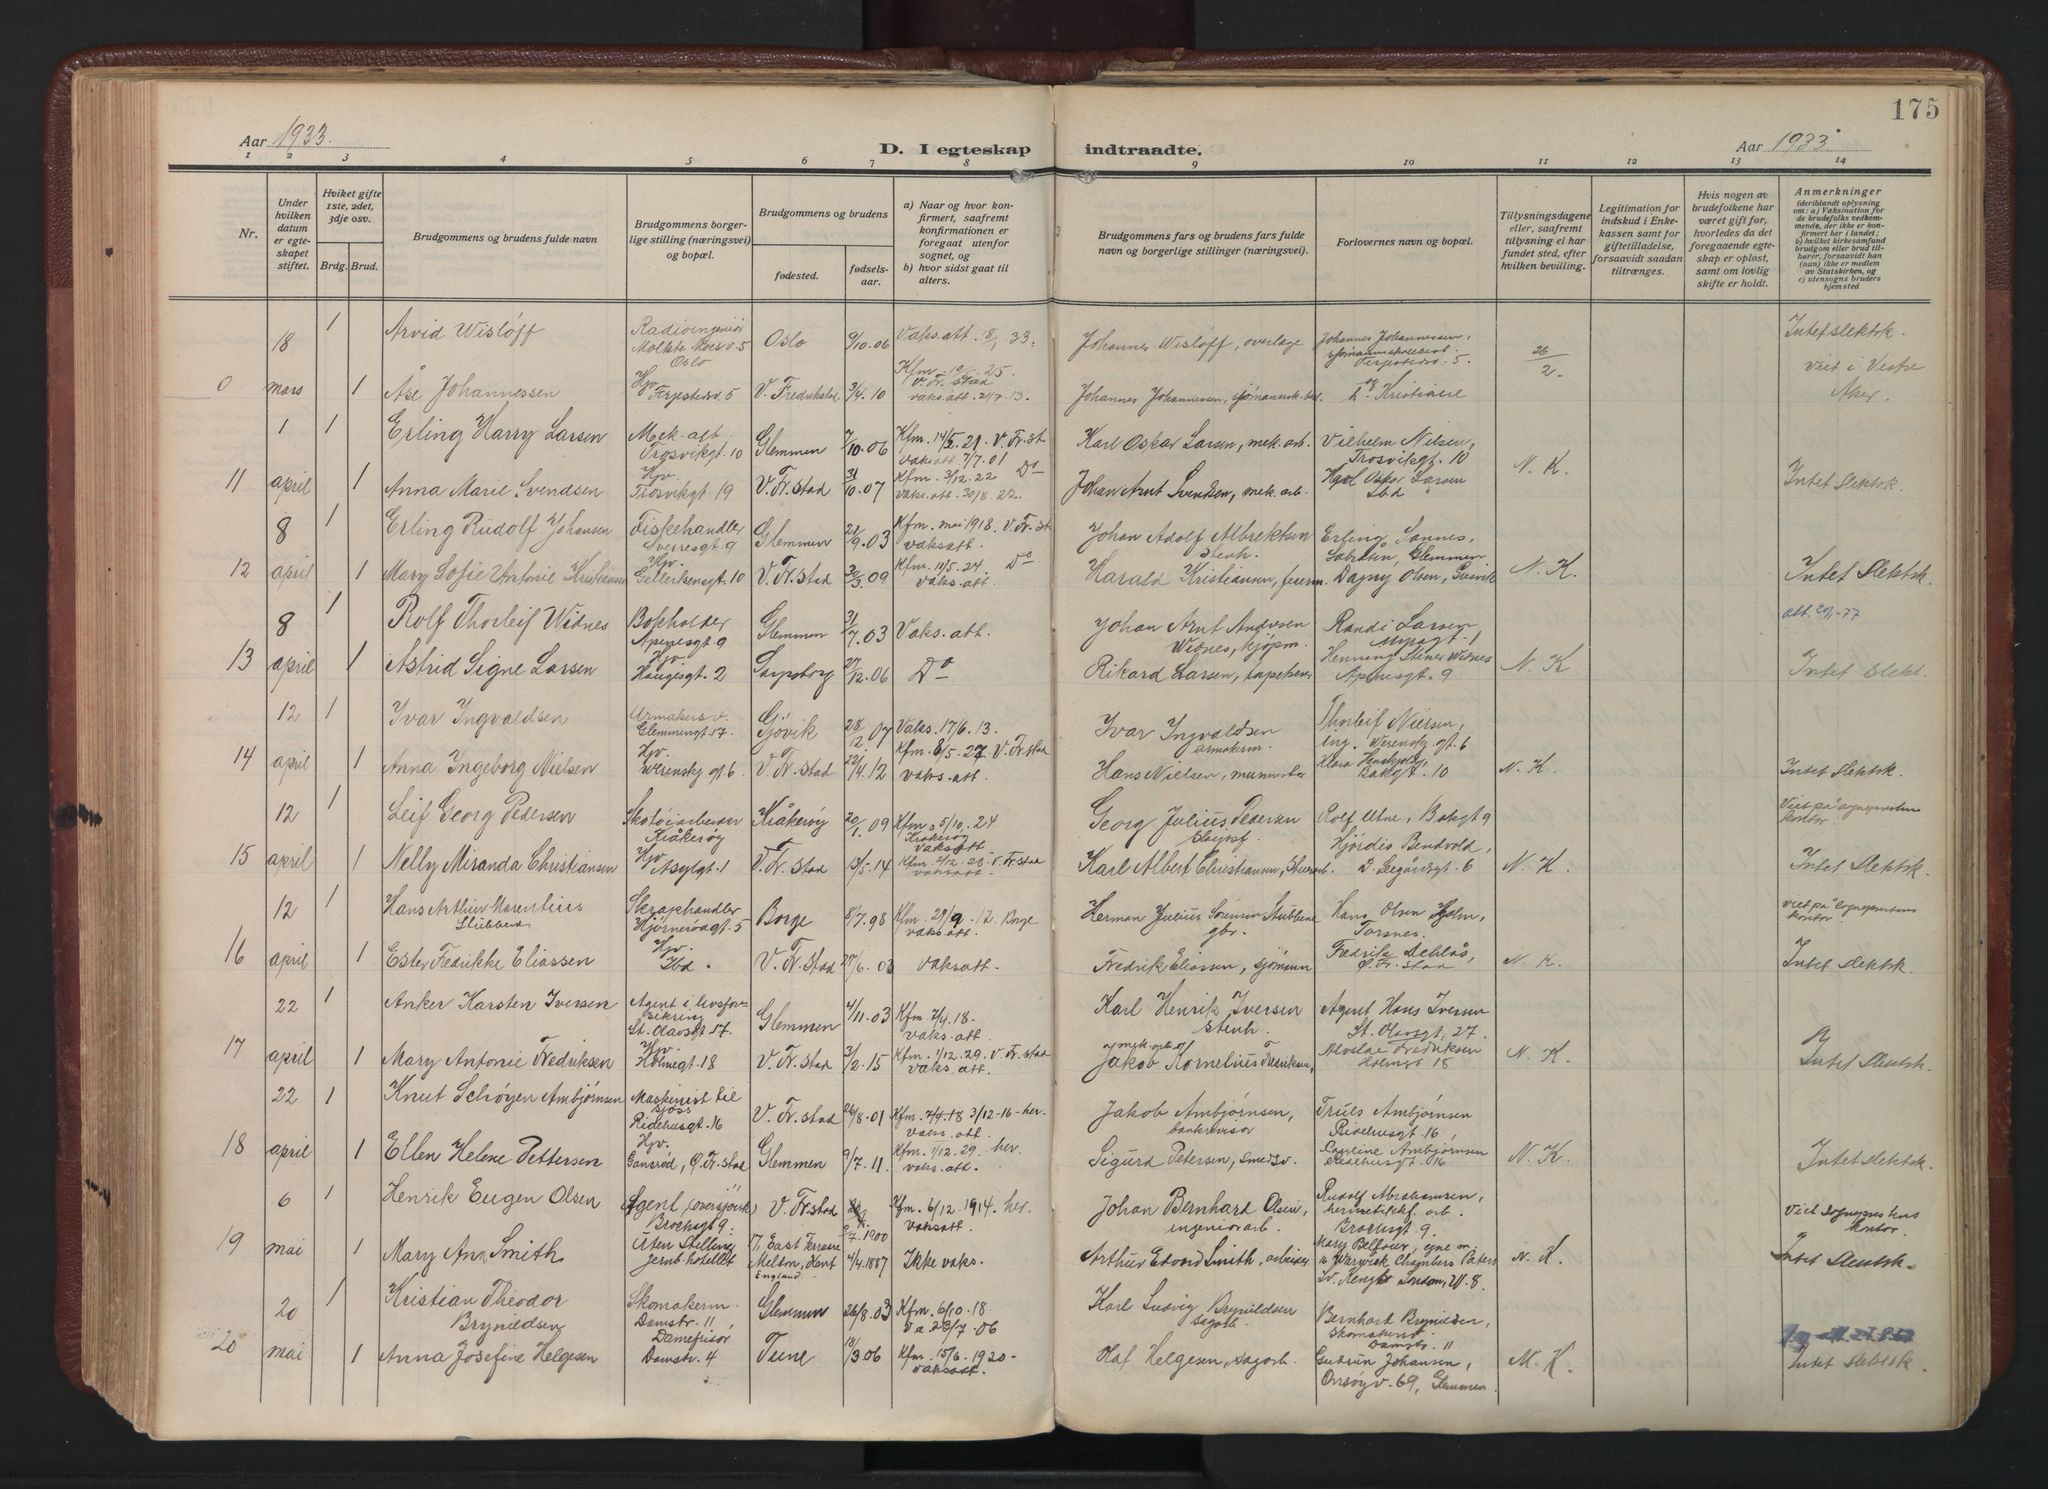 175
Aar 1933.
D. I egteskap indtraadte.
Aar 1933
1 2 3 4 5 6 7 8 9 10 11 12 13 14
Nr.
Under hvilken datum er egteskapet stiftet.
Hviket gifte 1ste, 2det, 3dje osv.
Brdg. Brud.
Brudgommens og brudens fulde navn
Brudgommens borgerlige stilling (næringsvei) og bopæl.
Brudgommens og brudens
fødested.
fødselsaar.
a) Naar og hvor konfirmert, saafremt konfirmationen er foregaat utenfor sognet, og
b) hvor sidst gaat til alters.
Brudgommens fars og brudens fars fulde navn og borgerlige stillinger (næringsvei).
Forlovernes navn og bopæl.
Tillysningsdagene eller, saafremt tillysning ei har fundet sted, efter hvilken bevilling.
Legitimation for indskud i Enkekassen samt for giftetilladelse, forsaavidt saadan tiltrænges.
Hvis nogen av brudefolkene har været gift før, hvorledes da det foregaaende egteskap er opløst, samt om lovlig skifte er holdt.
Anmerkninger
(deriblandt oplysning om: a) Vaksination for de brudefolks vedkommende, der ikke er konfirmert her i landet; b) hvilket kirkesamfund brudgom eller brud tilhører, forsaavidt han (hun) ikke er medlem av Statskirken, og c) utensogns bruders hjemsted
18 1 Arvid Wisløff Radioingeniør Moltke Moes v. 5 Oslo Oslo 9/10.06 Vaks.att. 18/1 33. Johannes Wisløff, overlege Johannes Johannessen, Ferjestedsv. 5. 26/2 Intet slektsk.
0 mars 1 Åse Johannessen Hjv. Ferjestedsv. 5 V. Fredrikstad 3/4 10 V. Fr.stad vaks.att. Johannes Johannessen, Viet i Vestre Aker.
1 1 Erling Harry Larsen Mek. arb. Trosvikgt. 10 Glemmen 7/10.06 Kfm. 14/5.21. V. Fr.st vaksatt 7/7.01 Karl Oskar Larsen, mek. arb. Vilhelm Nilsen, Trosvikgt. 10 N. K.
11 april 1 Anna Marie Svendsen Hjv. Trosvikgt 19 V. Fr.stad 31/10.07 Kfm. 3/12.22 Do vaks.att. 30/8.22. Johan Arnt Svendsen, mek. arb. Karl Oskar Larsen Ibd Intet slektsk.
8 1 Erling Rudolf Johansen Fiskehandler Sverresgt. 9 Glemmen 21/9.03 Kfm. mai 1918. V. Fr.st. vaksatt. Johan Adolf Albrektsen stenh. Erling Sannes, Glemmen
12 april 1 Mary Sofie Antonie Kristiansen Hjv. Gellertsensgt. 10 V. Fr.stad 30/3.09 Kfm. 11/5.24. Do vaks.att. Harald Kristiansen, Dagny Olsen, N. K. Intet slektsk.
8 1 Rolf Thorleif Widnes Bokholder Apenesgt 9 Glemmen 31/7.03 Vaks.att. Johan Arnt Andersen Widnes, kjøpm. Randi Larsen att. 29/1-77
13 april 1 Astrid Signe Larsen Hjv. Haugesgt. 2 Sarpsborg 27/12.06 Do Rikard Larsen, tapetserer Henning Stener Widnes Apenesgt. 9 N. K Intet slekt.
12 1 Ivar Ingvaldsen Urmakers v. Glemmengt. 17. Gjøvik 28/12.07 Vaks. 17/6.13. Ivar Ingvaldsen urmakerm. Thorleif Nielsen, ing. Werenskj.gt. 6
14 april 1 Anna Ingeborg Nielsen Hjv. Werenskj.gt. 6 V. Fr.stad 22/4.12 Kfm. 8/5.27 V. Fr.stad vaks.att. Hans Nielsen, murmester Bakgt. 10 N. K. Intet slektsk.
12 1 Leif Georg Pedersen Skotøiarbeider Kråkerøy Kråkerøy 20/1.09 Kfm. 5/10.24 Kråkerøy vaksatt Georg Julius Pedersen Rolf Utne, Bakgt 9 Viet på sogneprestens kontor
15 april 1 Nelly Miranda Christiansen Hjv. Asylgt. 1 V. Fr.stad 13/5.14 Kfm. 2/12.28. V. Fr.stad vaksatt. Karl Albert Christiansen, Hjørdis Bendvold, N. K. Intet slektsk.
12 1 Hans Arthur Marentius Stubberø Skraphandler Hjørnerødgt. 5 Borge 8/7.98 Kfm. 29/9.12. Borge vaks.att. Herman Julius Sørensen Stubberø gbr. Hans Olsen Holm, Torsnes. Viet på sogneprestens kontor
16 april 1 Ester Fredrikke Eliassen Hjv. Ibd. V. Fr.stad 27/6.03 vaksatt. Fredrik Eliassen, sjømann Ø. Fr.stad N. K. Intet slektsk.
22 1 Anker Karsten Iversen Agent i livsforsikring St. Olavsgt. 17. Glemmen 4/11.03 Kfm. 7/4.18. vaks.att. Karl Henrik Iversen stenh. Agent Hans Iversen St. Olavsgt. 27.
17 april 1 Mary Antonie Fredriksen Hjv. Holmegt. 18 V. Fr.stad 3/2.15 Kfm. 1/12.29. V. Fr.stad vaks.att. Jakob Kornelius Fredriksen, mek.arb. Fredriksen Holmegt 18 N. K. Intet slektsk.
22 1 Knut Schøyen Ambjørnsen Maskinist til sjøss Ridehusgt. 16 V. Fr.stad 26/8.01 Kfm. 7/4.18 3/12-16- her. vaks.att. Jakob Ambjørnsen, bankrevisor Truls Ambjørnsen Ridehusgt 16,
18 april 1 Ellen Helene Pettersen Hjv. Gansrød, Ø. Fr.stad Glemmen 9/7.11. Kfm. 1/12.29. her. vaks.att. Sigurd Petersen, Ambjørnsen Ridehusgt. 16 N. K. Intet slektsk.
6 1 Henrik Eugen Olsen Agent, (oversjøisk) Brochsgt 9. V. Fr.stad 2/7.1900 Kfm. 6/12.1914. her. vaksatt. Johan Bernhard Olsen, ingeniørarb. Rudolf Abrahamsen, hermetikkf. arb. Brochsgt. 9. Viet Sogneprestens kontor.
19 mai 1 Mary Ann Smith Uten Stilling Jernb.hotellet 17, East Terrasse Melton, Kent England 4/4.1887 Ikke vaks. Arthur Edvard Smith, arbeider Mary Belfour, Warwick Chambers London, W. 8. N. K. Intet slektsk.
20 1 Kristian Theodor Brynildsen Skomakerm. Damstr. 11, Glemmen 26/8.03 Kfm. 6/10.18. Va 23/7.06 Karl Ludvig Brynildsen sagarb. Bernhart Brynildsen, Damstr. 11
20 mai 1 Anna Josefine Helgesen Damefrisør Damstr. 4 Tune 18/3.06 Kfm. 15/6.1920- vaksatt. Olaf Helgesen, sagarb. Gudrun Johansen, Onsøyv. 69, Glemmen. N. K. Intet slektsk.